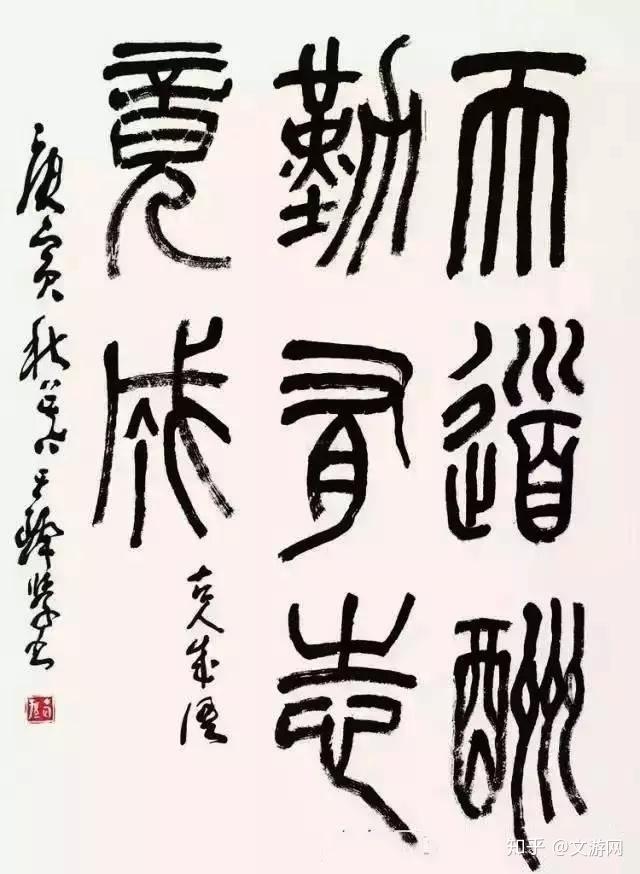 天道酬
勤有志
竟成
古人成语
庚寅秋
知乎 @文游网